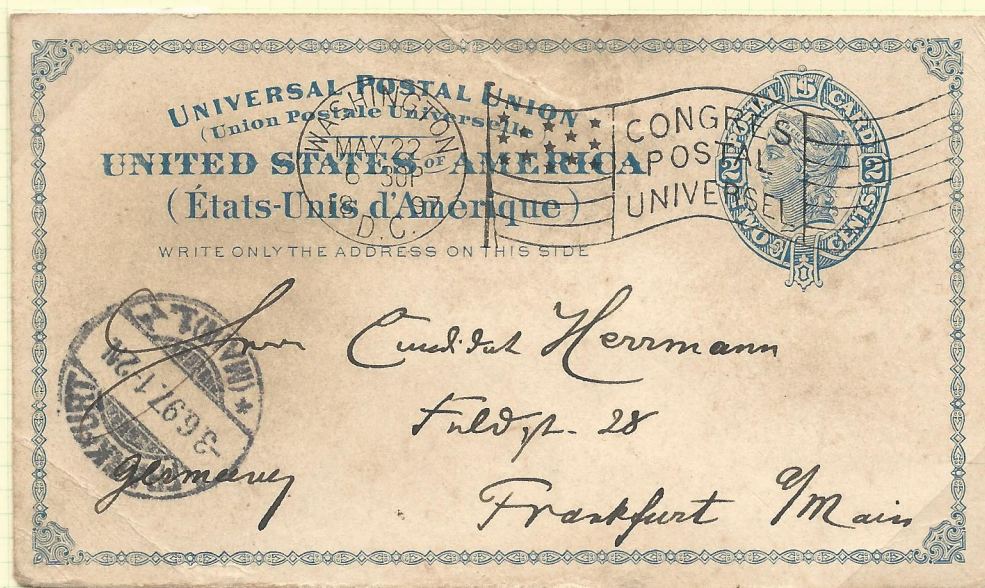 UNIVERSAL POSTAL UNION
(Union Postale Universelle)
UNITED STATES OF AMERICA
(États-Unis d'Amérique)
WRITE ONLY THE ADDRESS ON THIS SIDE
WASHINGTON
MAY 22
6 30P
97
D.C.
CONGRES
POSTAL
UNIVERSEL
POSTAL CARD
2 2
TWO CENTS
Herrn Candidat Herrmann
28
Germany
Frankfurt a/Main
FRANKFURT
* (MAIN)
3.6.97. 1-2N.